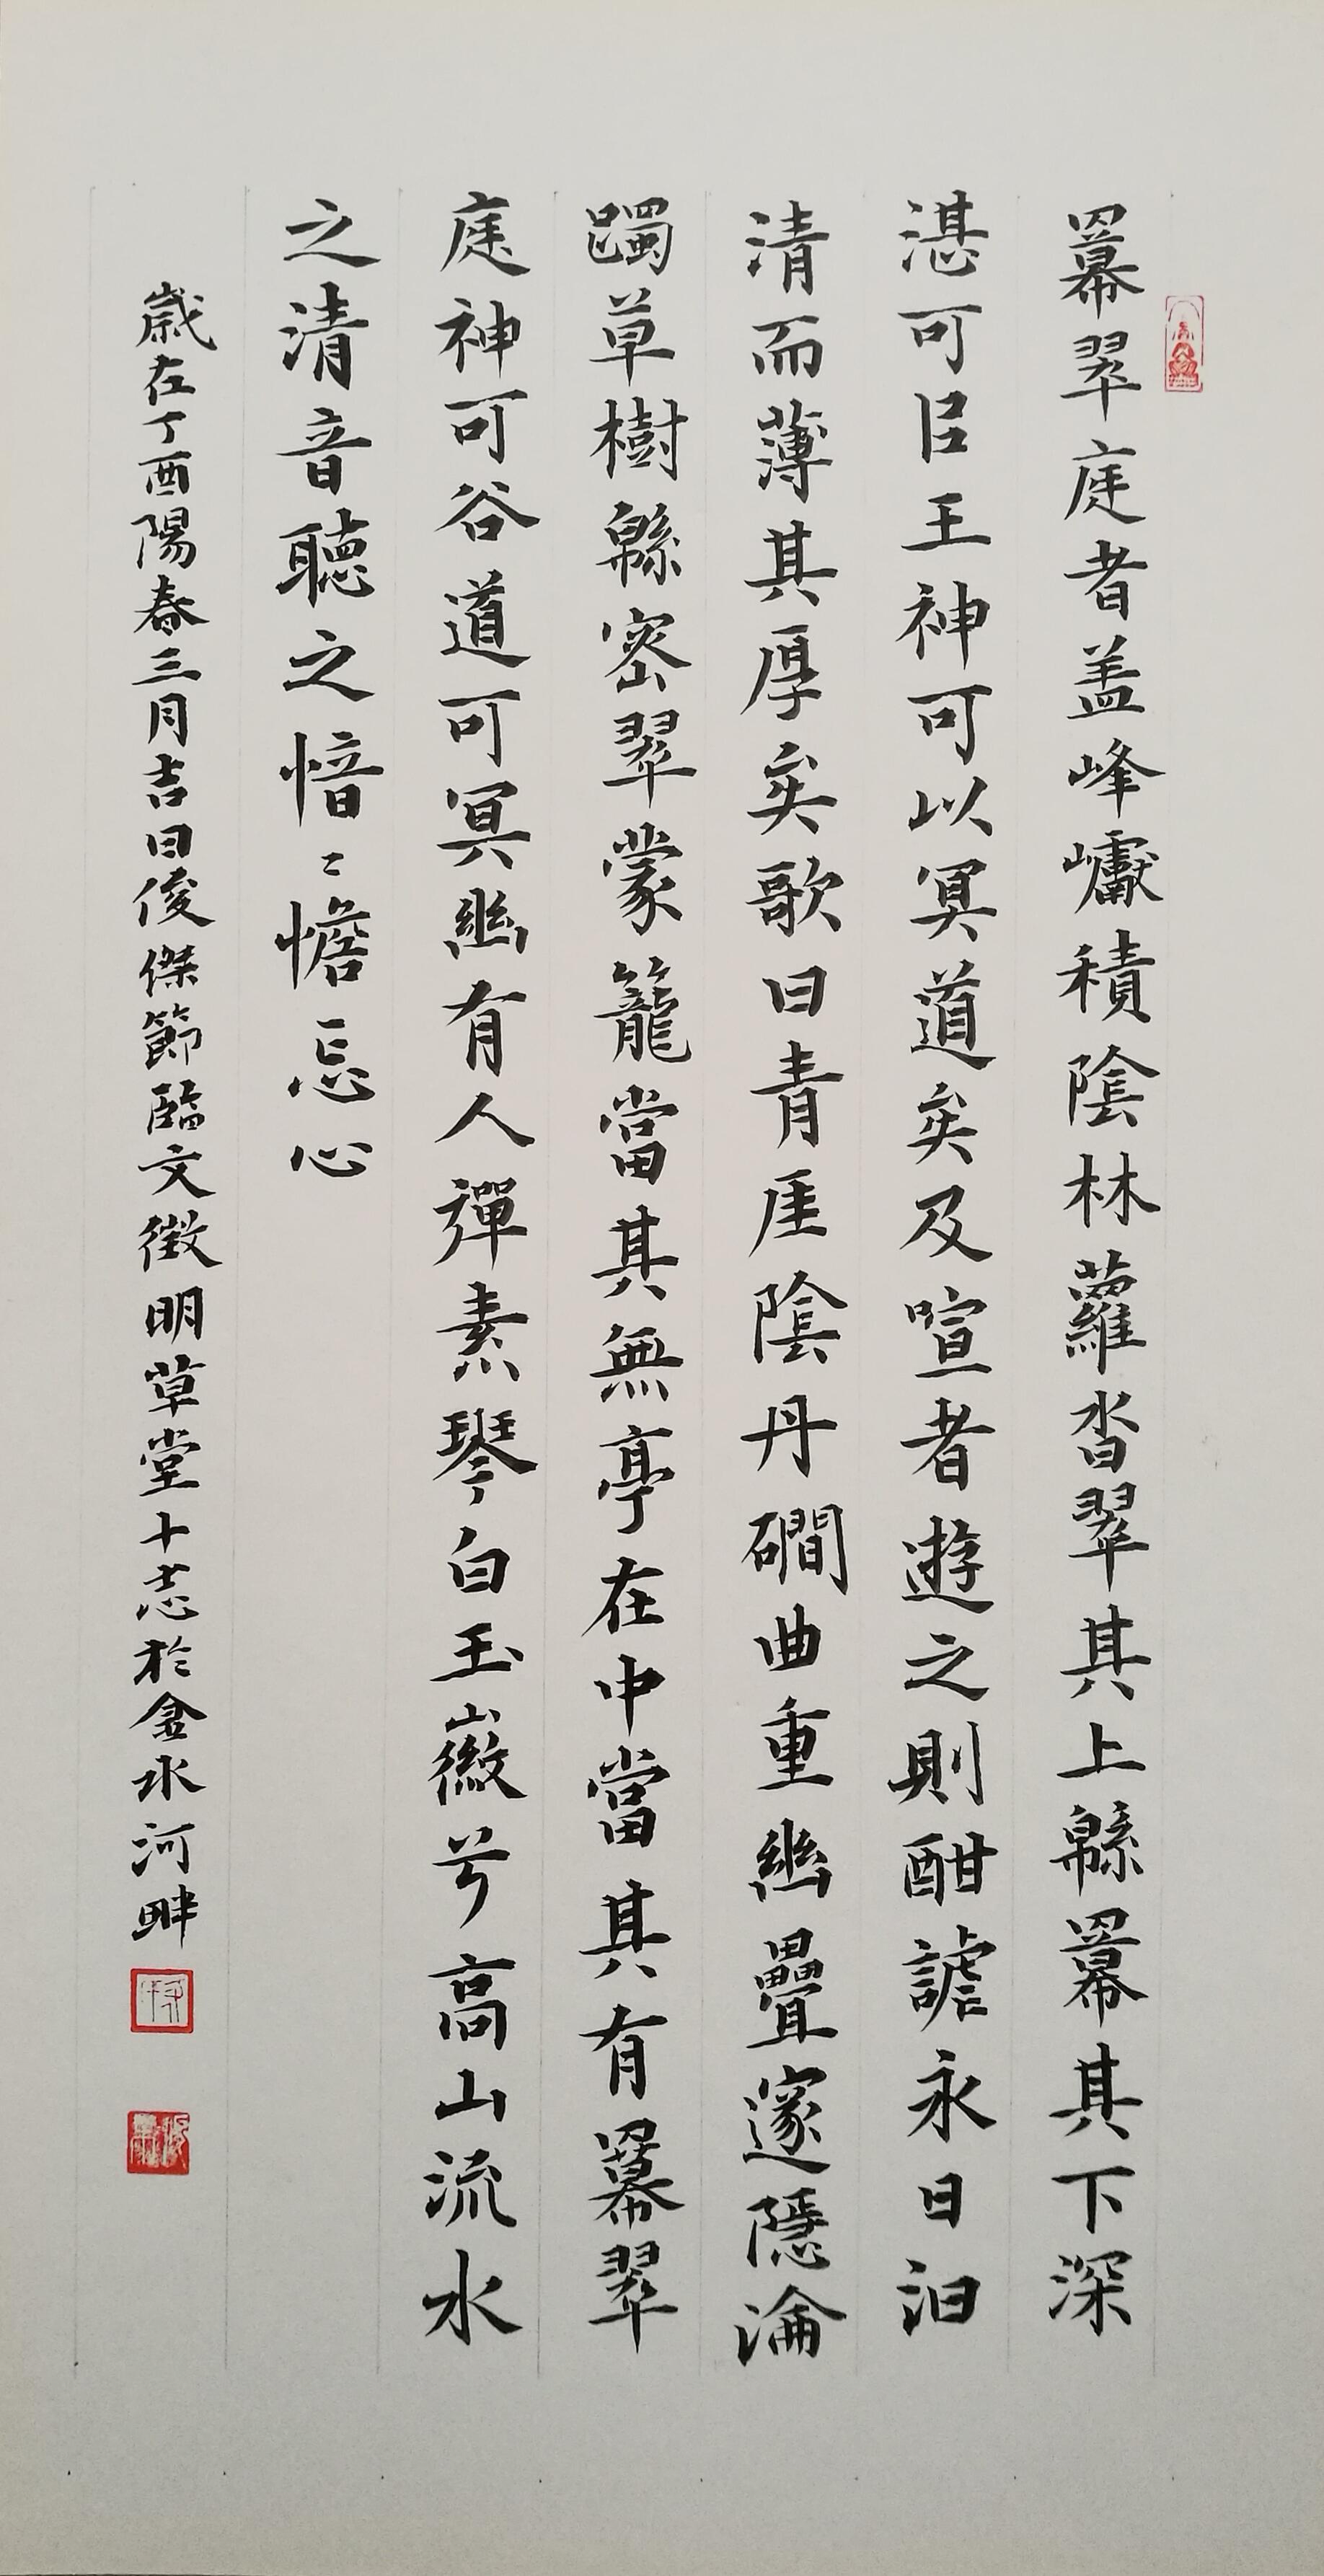 羃翠庭者盖峰巘積陰林蘿沓翠其上緜羃其下深
湛可居王神可以冥道矣及喧者遊之則酣謔永日汩
清而薄其厚矣歌曰青厓陰丹磵曲重幽疊邃隱淪
躅草樹緜密翠蒙籠當其無亭在中當其有羃翠
庭神可谷道可冥幽有人彈素琴白玉徽兮高山流水
之清音聽之愔〻憺忘心
歲在丁酉陽春三月吉日俊傑節臨文徵明草堂十志於金水河畔